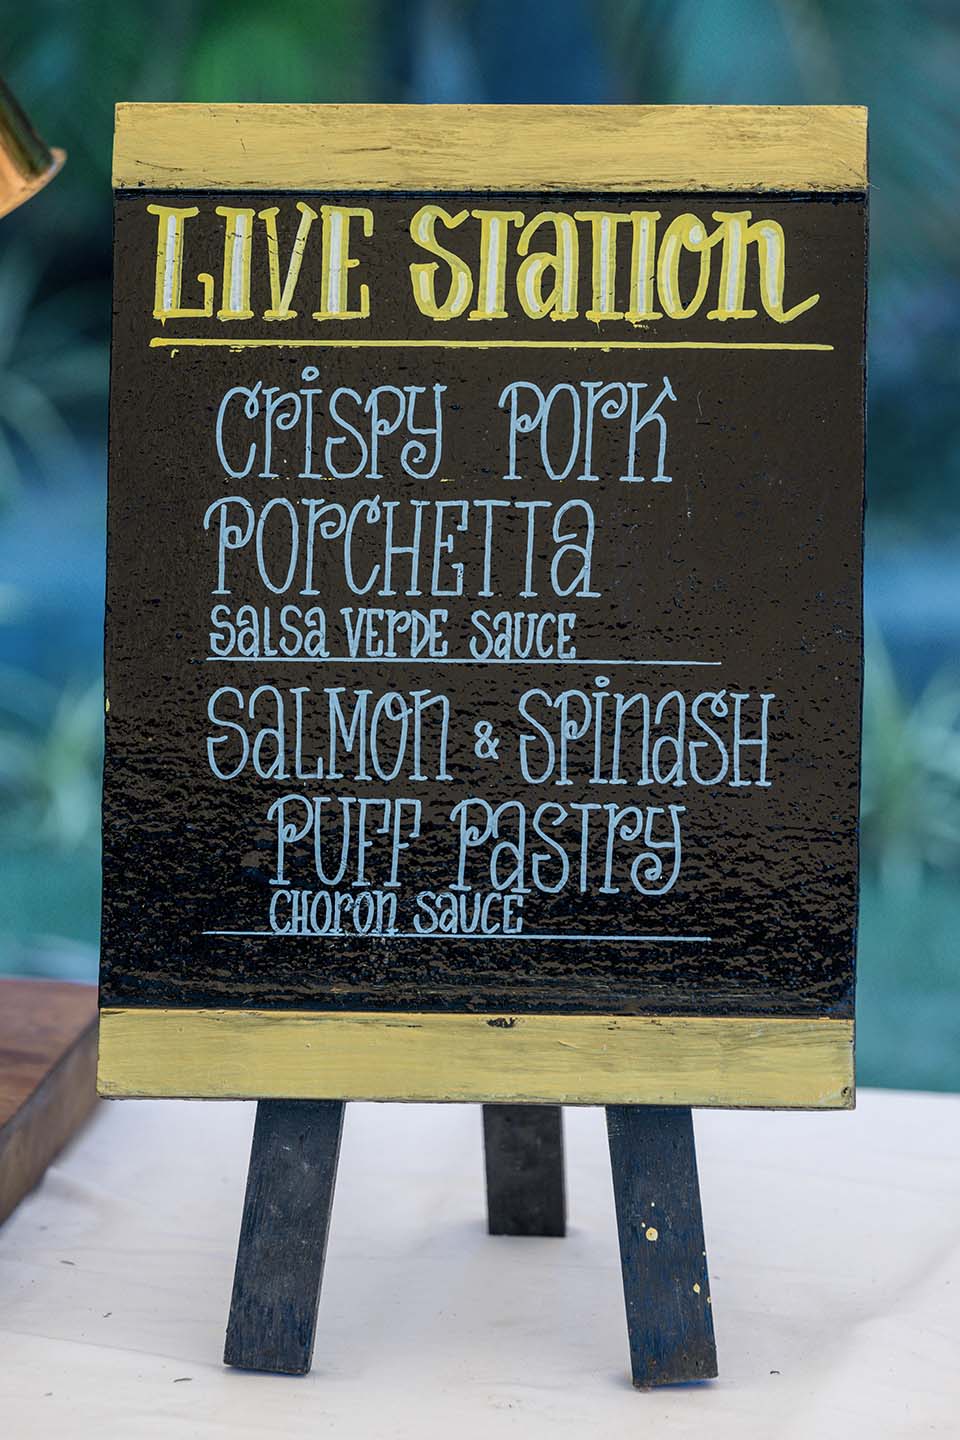 LIVE STATION
CRISPY PORK
PORCHETTA
SALSA VERDE SAUCE
SALMON & SPINASH
PUFF PASTRY
CHORON SAUCE